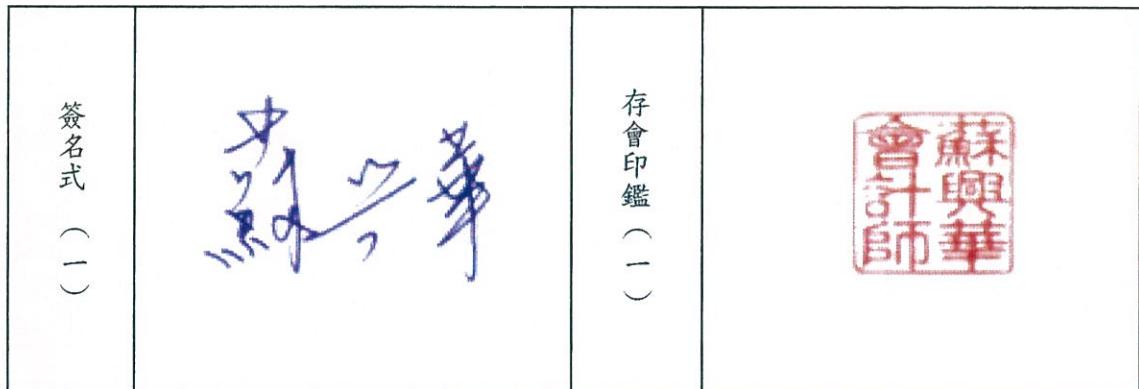 簽名式（一）
蘇兴華
存會印鑑（一）
蘇興華
會計師